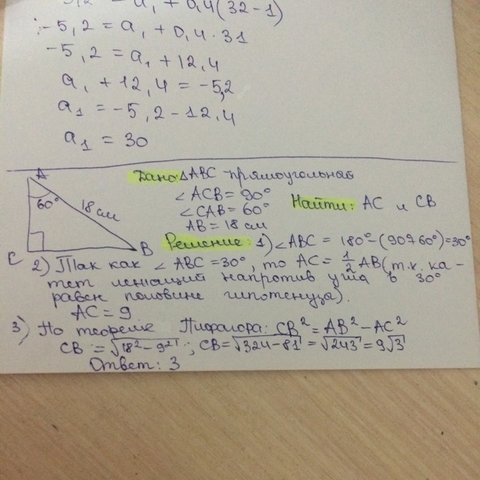 -5,2 = a₁ + 0,4(32-1)
-5,2 = a₁ + 0,4·31
-5,2 = a₁ + 12,4
a₁ + 12,4 = -5,2
a₁ = -5,2-12,4
a₁ = 30
A
60°
18 см
C
B
Дано: △ABC прямоугольная
∠ACB = 90°
∠CAB = 60°
AB = 18 см
Найти: AC и CB
Решение: 1) ∠ABC = 180°-(90+60°)=30°
2) Так как ∠ABC = 30°, то AC = 1/2 AB (т.к. ка-
тет лежащий напротив угла в 30°
равен половине гипотенузы).
AC = 9.
3) По теореме Пифагора: CB² = AB² - AC²
CB = √18² - 9² ; CB = √324-81 = √243 = 9√3
Ответ: 3